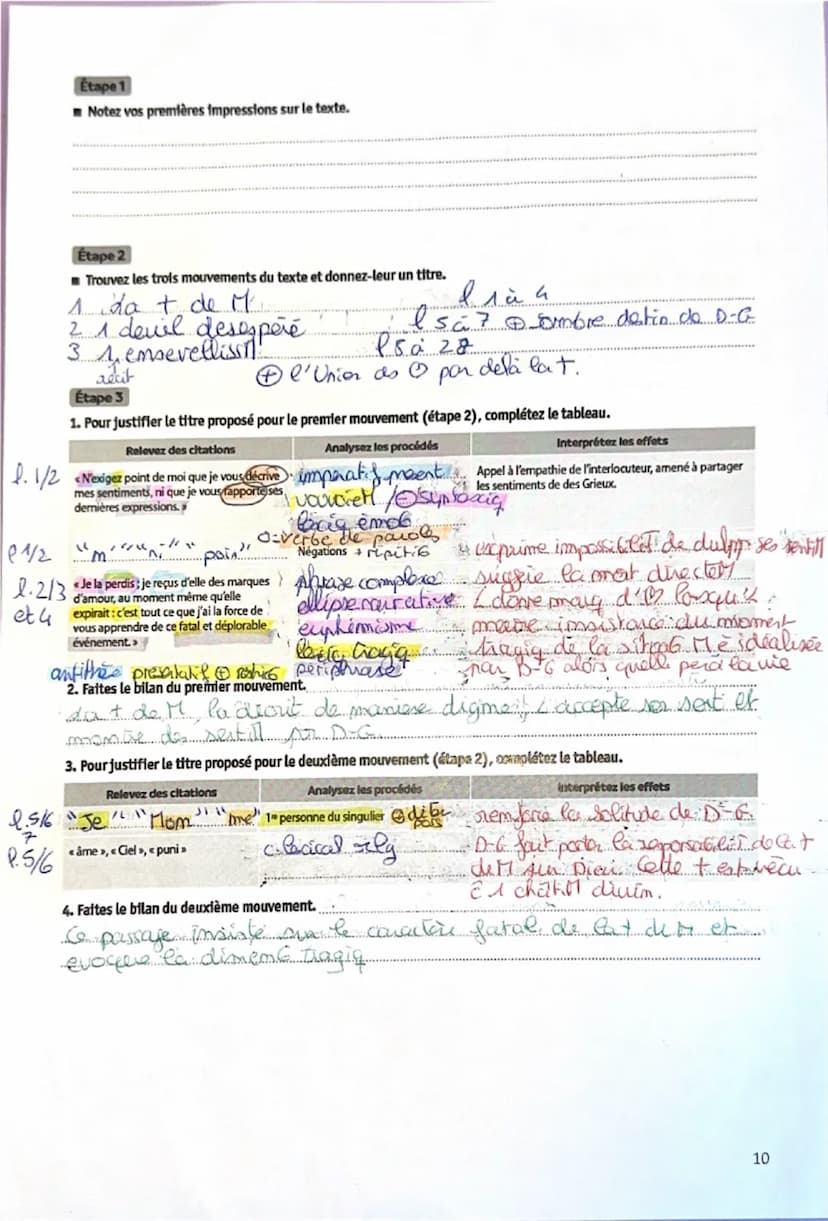 Étape 1
■ Notez vos premières impressions sur le texte.
Étape 2
■ Trouvez les trois mouvements du texte et donnez-leur un titre.
1 La + de M l 1 à 4
2 1 deuil desespéré l 5 à 7 ⊕ sombre destin de D-G
3 1 ensevelissM l 8 à 28
récit ⊕ l'Union des ♡ par delà la +.
Étape 3
1. Pour justifier le titre proposé pour le premier mouvement (étape 2), complétez le tableau.
Relevez des citations Analysez les procédés Interprétez les effets
l. 1/2 « N'exigez point de moi que je vous décrive imperatif présent Appel à l'empathie de l'interlocuteur, amené à partager
mes sentiments, ni que je vous rapporte ses les sentiments de des Grieux.
dernières expressions. »
verbe de paroles
l 1/2 "n'" "ni" "point" Négations + exprime impossibilité de ses
l. 2/3 « Je la perdis ; je reçus d'elle des marques phrase complexe suggère la mort directeM
et 4 d'amour, au moment même qu'elle ellipse narrative
expirait : c'est tout ce que j'ai la force de euphémisme
vous apprendre de ce fatal et déplorable tragiq
événement. »
antithèse périphrase par D-G alors quelle perd la vie
2. Faites le bilan du premier mouvement.
La + de M, la décrit de maniere digne accepte son sort et
montre des par D-G.
3. Pour justifier le titre proposé pour le deuxième mouvement (étape 2), complétez le tableau.
Relevez des citations Analysez les procédés Interprétez les effets
l. 5/6 "Je" "Mon" "me" 1re personne du singulier renforce la solitude de D-G.
7
l. 5/6 « âme », « Ciel », « puni » c. lexical relg D-G fait porter la responsabilité de la +
de M sur Dieu. Cette + est vécu
c 1 châtiM divin.
4. Faites le bilan du deuxième mouvement.
Ce passage insiste sur le caractère fatal de la + de M et
evoque la tragiq
10